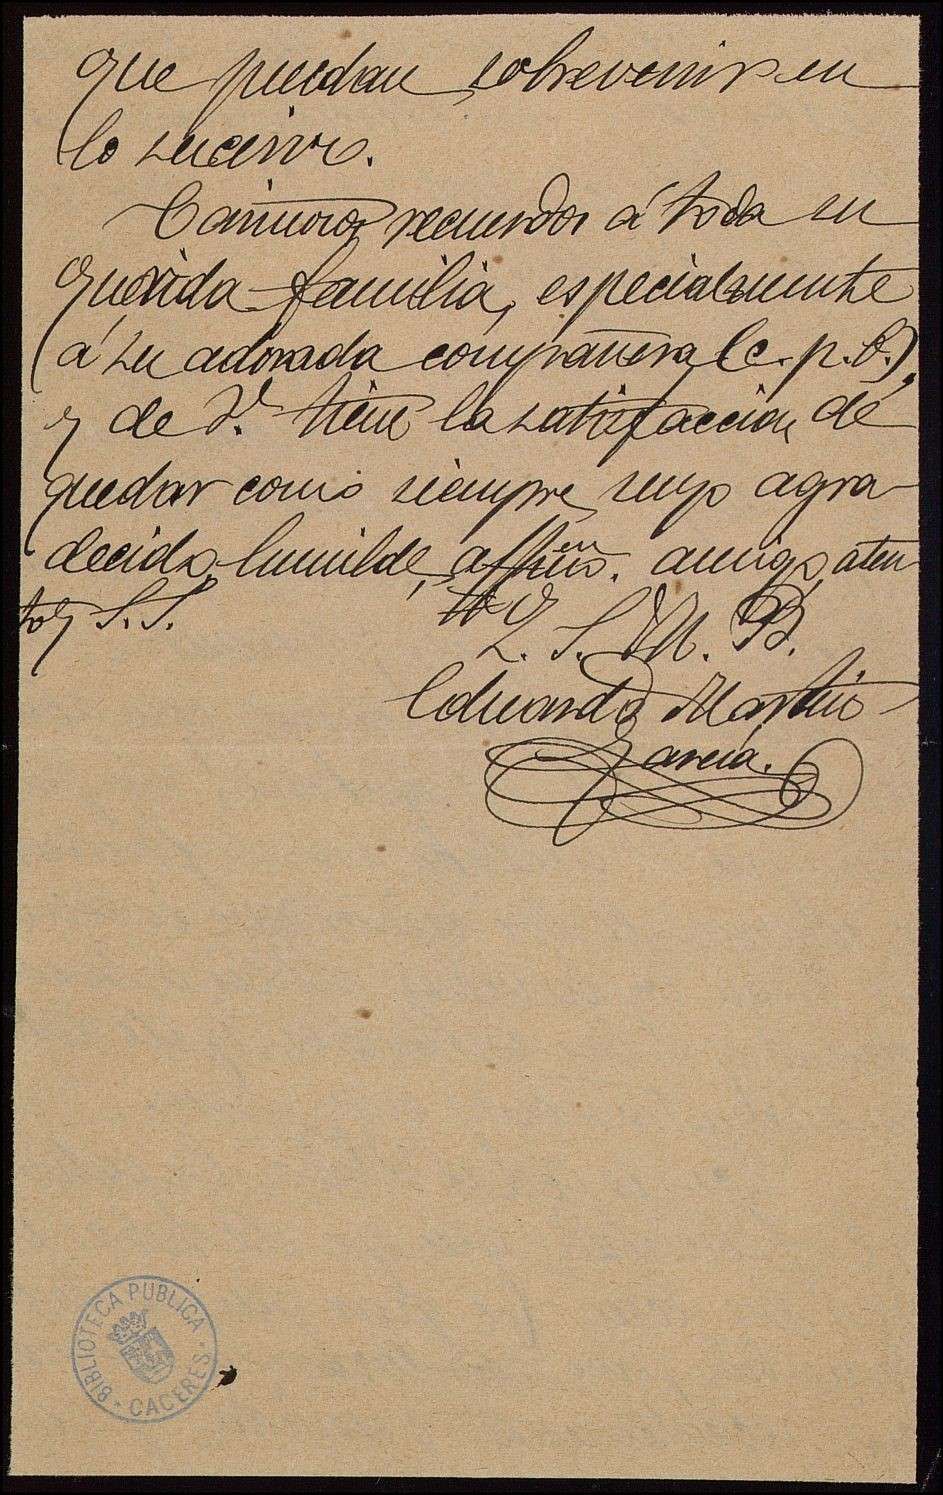 que puedan sobrevenir en
lo sucesivo.
Cariñosos recuerdos á toda su
querida familia, especialmente
á su adorada compañera (c. p. b.),
y de V. tiene la satisfaccion de
quedar como siempre suyo agra-
decido, humilde, affmo. amigo, aten-
to y S. S.
Q. S. M. B.
Eduardo Martin
Garcia.
BIBLIOTECA PUBLICA
CACERES